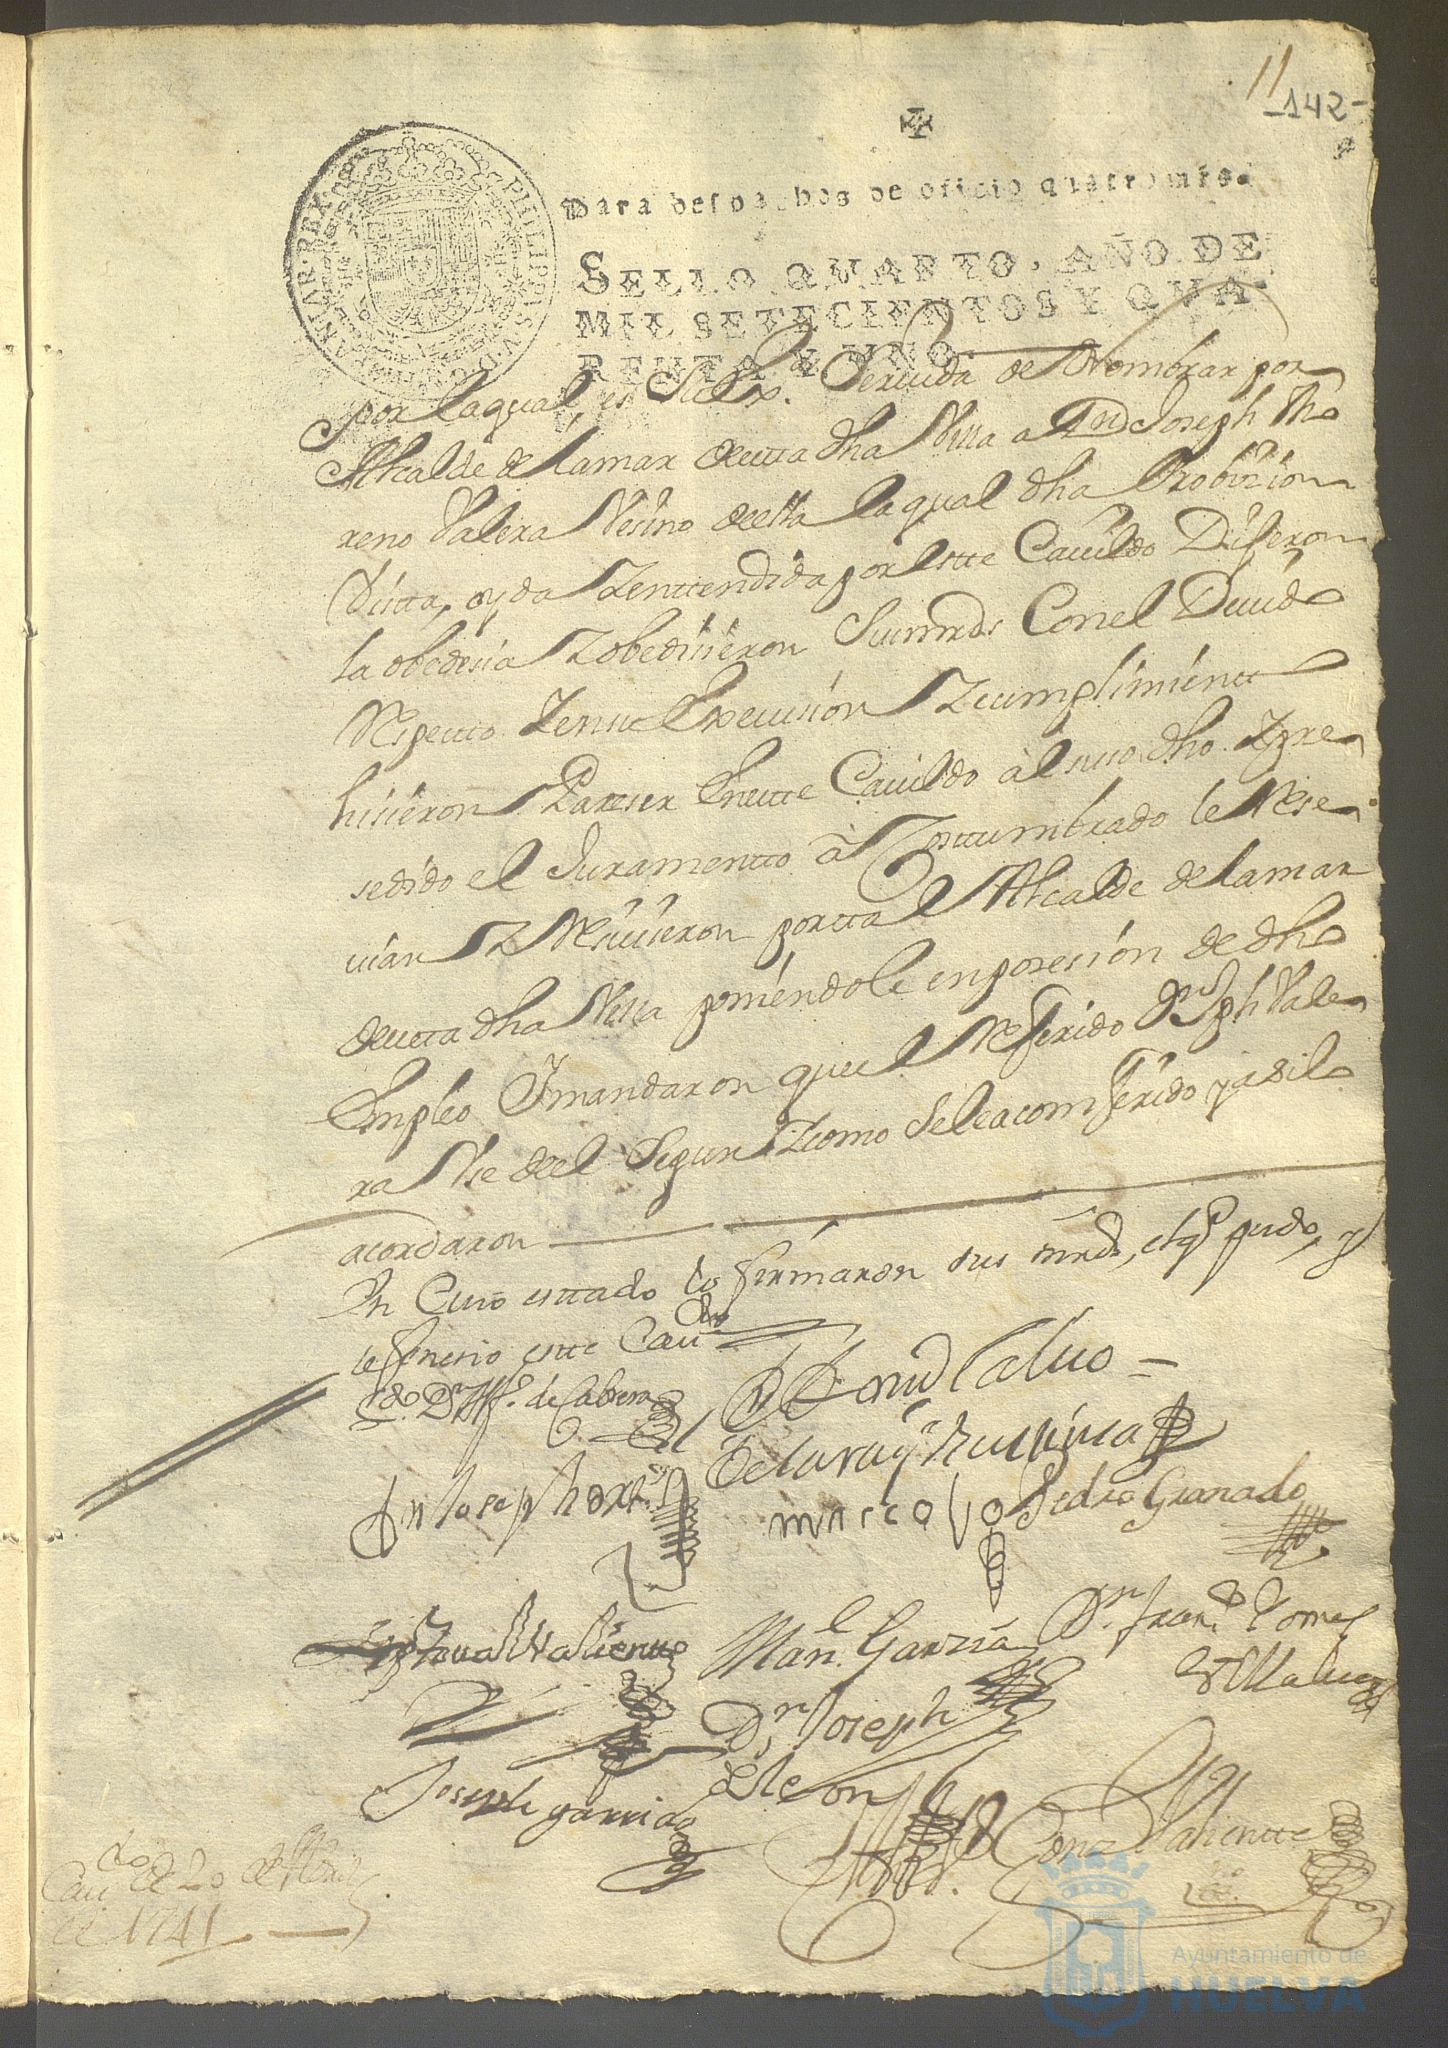 11
-142-
Para despachos de oficio quatro mrs.
SELLO QVARTO, AÑO DE
MIL SETECIENTOS Y QVA-
RENTA Y VNO.
PHILIPPUS V D G HISPANIAR REX
por la qual es Su Exa. Seruida de Nombrar por
Alcalde de la mar de esta dha Villa a Dn Joseph
reno Valera Vesino de ella la qual dha Probizion
Vista, oyda Y enttendida por este Cauildo Diseron
la obedesia Y obedisieron Sus mrds Con el Deuido
Respecto Y en su Execusion Y cumplimientto
hisieron Pareser En este Cauildo à el suso dho Y pre
sedido el Juramentto à Costtumbrado le Rese
uian Y Resiuieron por tal Alcalde de la mar
de esta dha Villa poniendole en posesion de dho
Empleo Y mandaron que el Referido Dn Jph Vale
ra Vse de el Segun Y como Se le a comferido y asi lo
acordaron
En Cuio esttado lo firmaron sus mrds, el qe pudo, y
se fenesio este Caudo
Ldo. Dn Alfo. de Cabrera
Caluo =
Dn Joseph
marcos
Pedro Granado
Valiente
Man. Garzia
Dn. Fran.co Gomes
Dn. Joseph
de Leon
Joseph garrido
Gonz Valientte
Caudo de 20 de Abril
de 1741
Ayuntamiento de
HUELVA